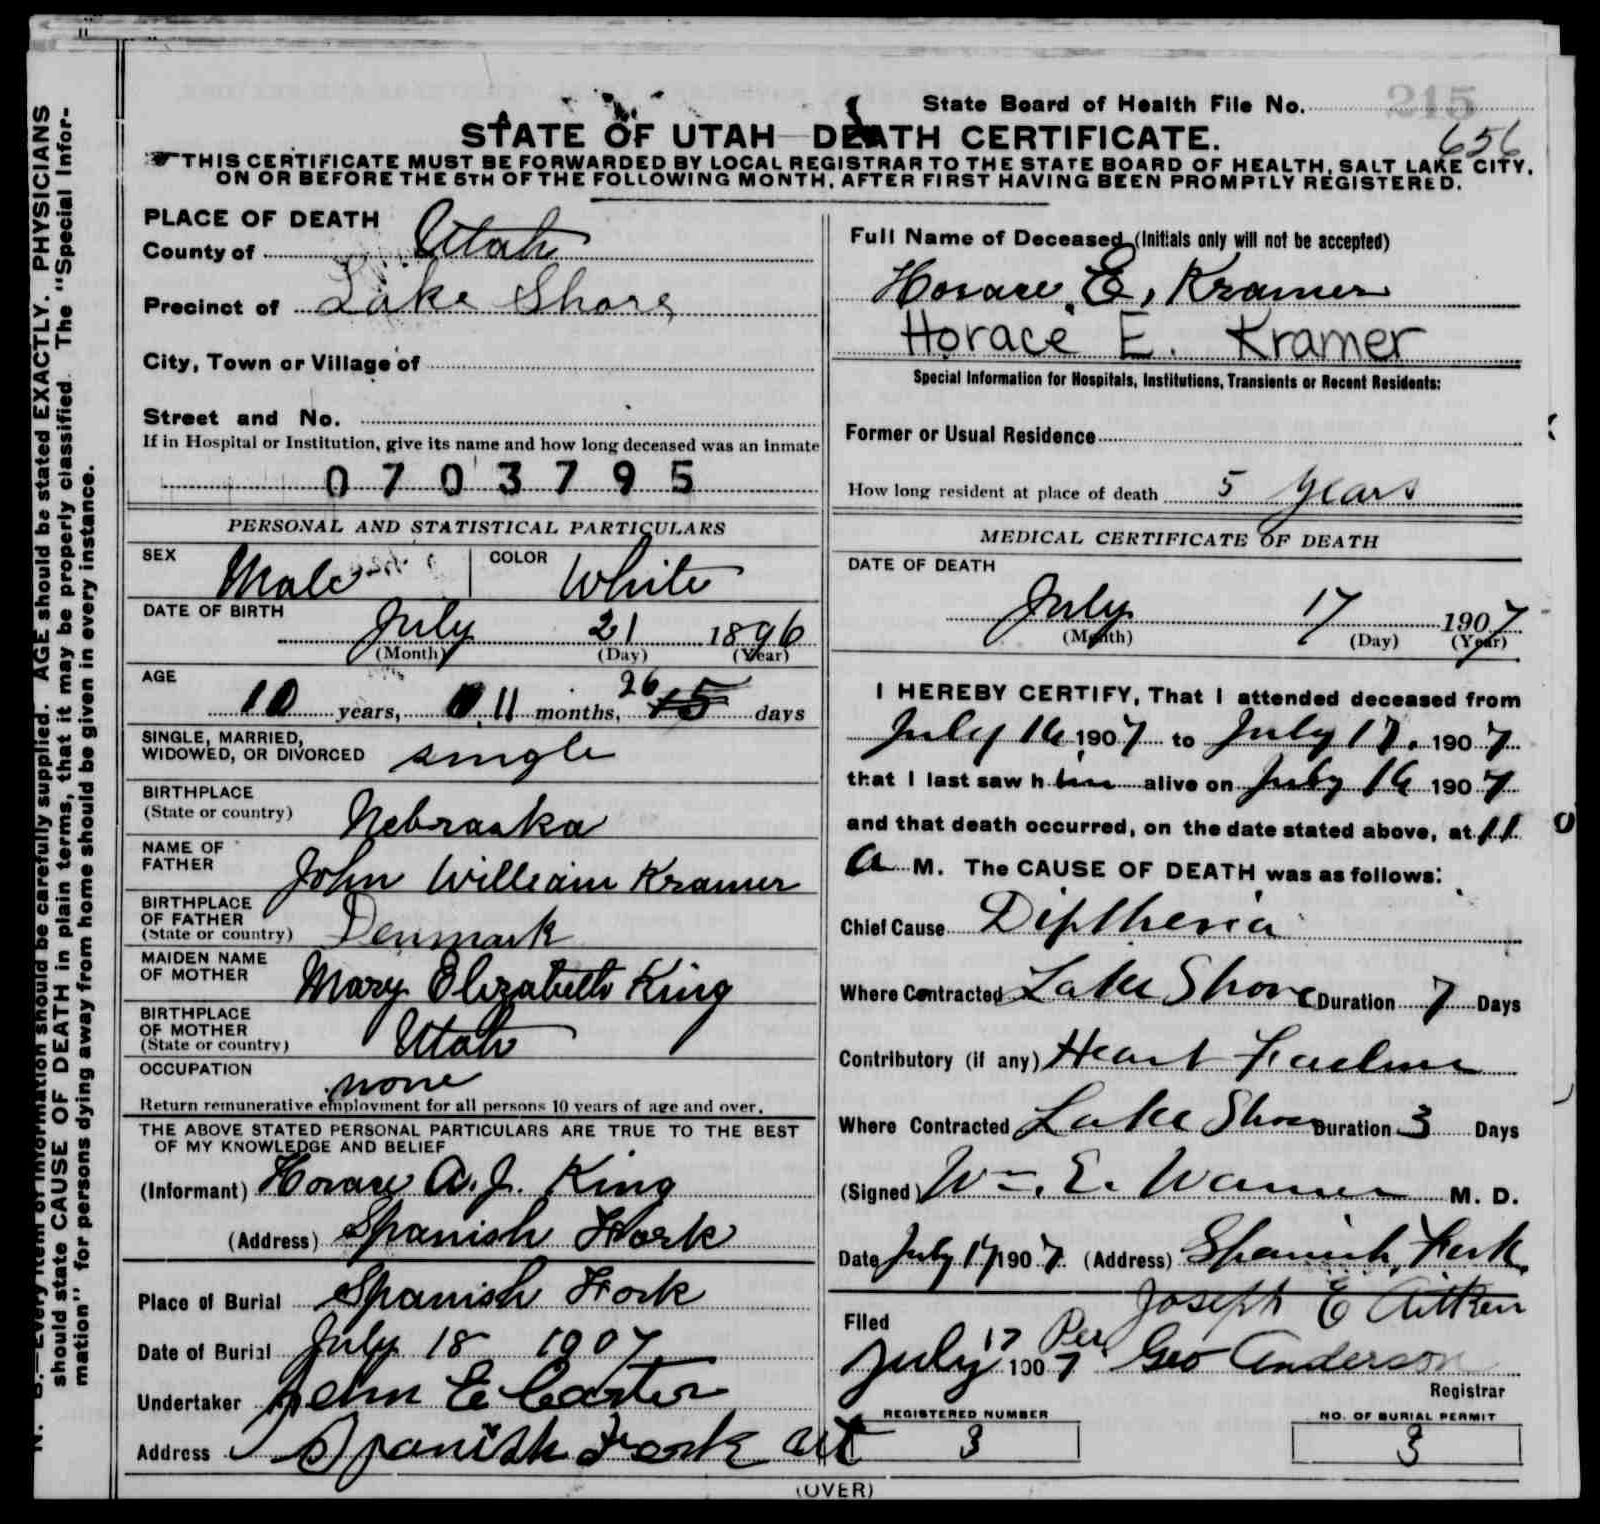 N. B.—Every item of information should be carefully supplied. AGE should be stated EXACTLY. PHYSICIANS
should state CAUSE OF DEATH in plain terms, that it may be properly classified. The "Special Infor-
mation" for persons dying away from home should be given in every instance.
State Board of Health File No. 215
STATE OF UTAH—DEATH CERTIFICATE.
656
THIS CERTIFICATE MUST BE FORWARDED BY LOCAL REGISTRAR TO THE STATE BOARD OF HEALTH, SALT LAKE CITY,
ON OR BEFORE THE 5TH OF THE FOLLOWING MONTH, AFTER FIRST HAVING BEEN PROMPTLY REGISTERED.
PLACE OF DEATH
County of Utah
Precinct of Lake Shore
City, Town or Village of
Street and No.
If in Hospital or Institution, give its name and how long deceased was an inmate
0703795
PERSONAL AND STATISTICAL PARTICULARS
SEX Male COLOR White
DATE OF BIRTH July 21 1896
(Month) (Day) (Year)
AGE 10 years, 11 months, 26 15 days
SINGLE, MARRIED,
WIDOWED, OR DIVORCED single
BIRTHPLACE
(State or country) Nebraska
NAME OF
FATHER John William Kramer
BIRTHPLACE
OF FATHER
(State or country) Denmark
MAIDEN NAME
OF MOTHER Mary Elizabeth King
BIRTHPLACE
OF MOTHER
(State or country) Utah
OCCUPATION none
Return remunerative employment for all persons 10 years of age and over.
THE ABOVE STATED PERSONAL PARTICULARS ARE TRUE TO THE BEST
OF MY KNOWLEDGE AND BELIEF
(Informant) Horace A. J. King
(Address) Spanish Fork
Place of Burial Spanish Fork
Date of Burial July 18 1907
Undertaker John E Carter
Address Spanish Fork Ut
Full Name of Deceased (Initials only will not be accepted)
Horace E, Kramer
Horace E. Kramer
Special Information for Hospitals, Institutions, Transients or Recent Residents:
Former or Usual Residence
How long resident at place of death 5 years
MEDICAL CERTIFICATE OF DEATH
DATE OF DEATH
July 17 1907
(Month) (Day) (Year)
I HEREBY CERTIFY, That I attended deceased from
July 16 1907 to July 17, 1907
that I last saw him alive on July 16 1907
and that death occurred, on the date stated above, at 11
a M. The CAUSE OF DEATH was as follows:
Chief Cause Diptheria
Where Contracted Lake Shore Duration 7 Days
Contributory (if any) Heart Failure
Where Contracted Lake Shore Duration 3 Days
(Signed) Wm. E. Warner M. D.
Date July 17 1907 (Address) Spanish Fork
Joseph E Aitken
Filed
July 17 1907 Per Geo Anderson
Registrar
REGISTERED NUMBER
3
NO. OF BURIAL PERMIT
3
(OVER)